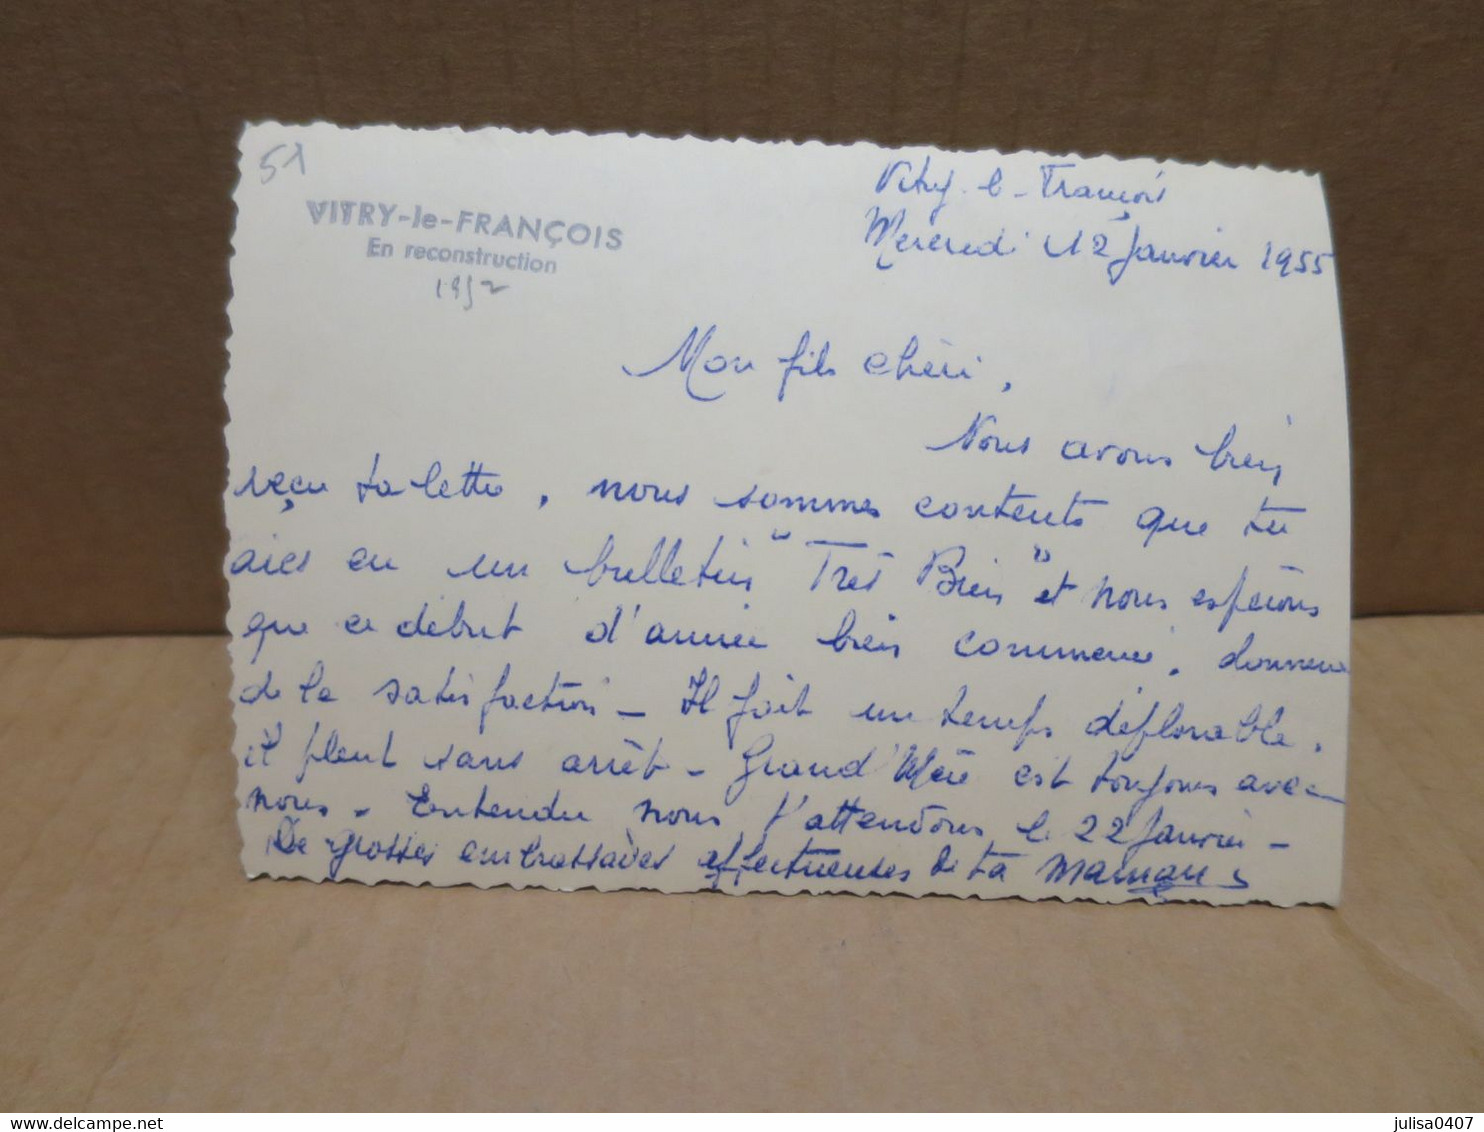 51
VITRY-le-FRANÇOIS
En reconstruction
1952
Vitry-le-François
Mercredi 12 Janvier 1955
Mon fils chéri,
Nous avons bien
reçu ta lettre, nous sommes contents que tu
aies eu un bulletin "Très Bien" et nous espérons
que ce début d'année bien commencé, donnera
de la satisfaction - Il fait un temps déplorable,
il pleut sans arrêt - Grand'Mère est toujours avec
nous - Entendu nous t'attendons le 22 Janvier -
De grosses embrassades affectueuses de ta Maman
julisa0407